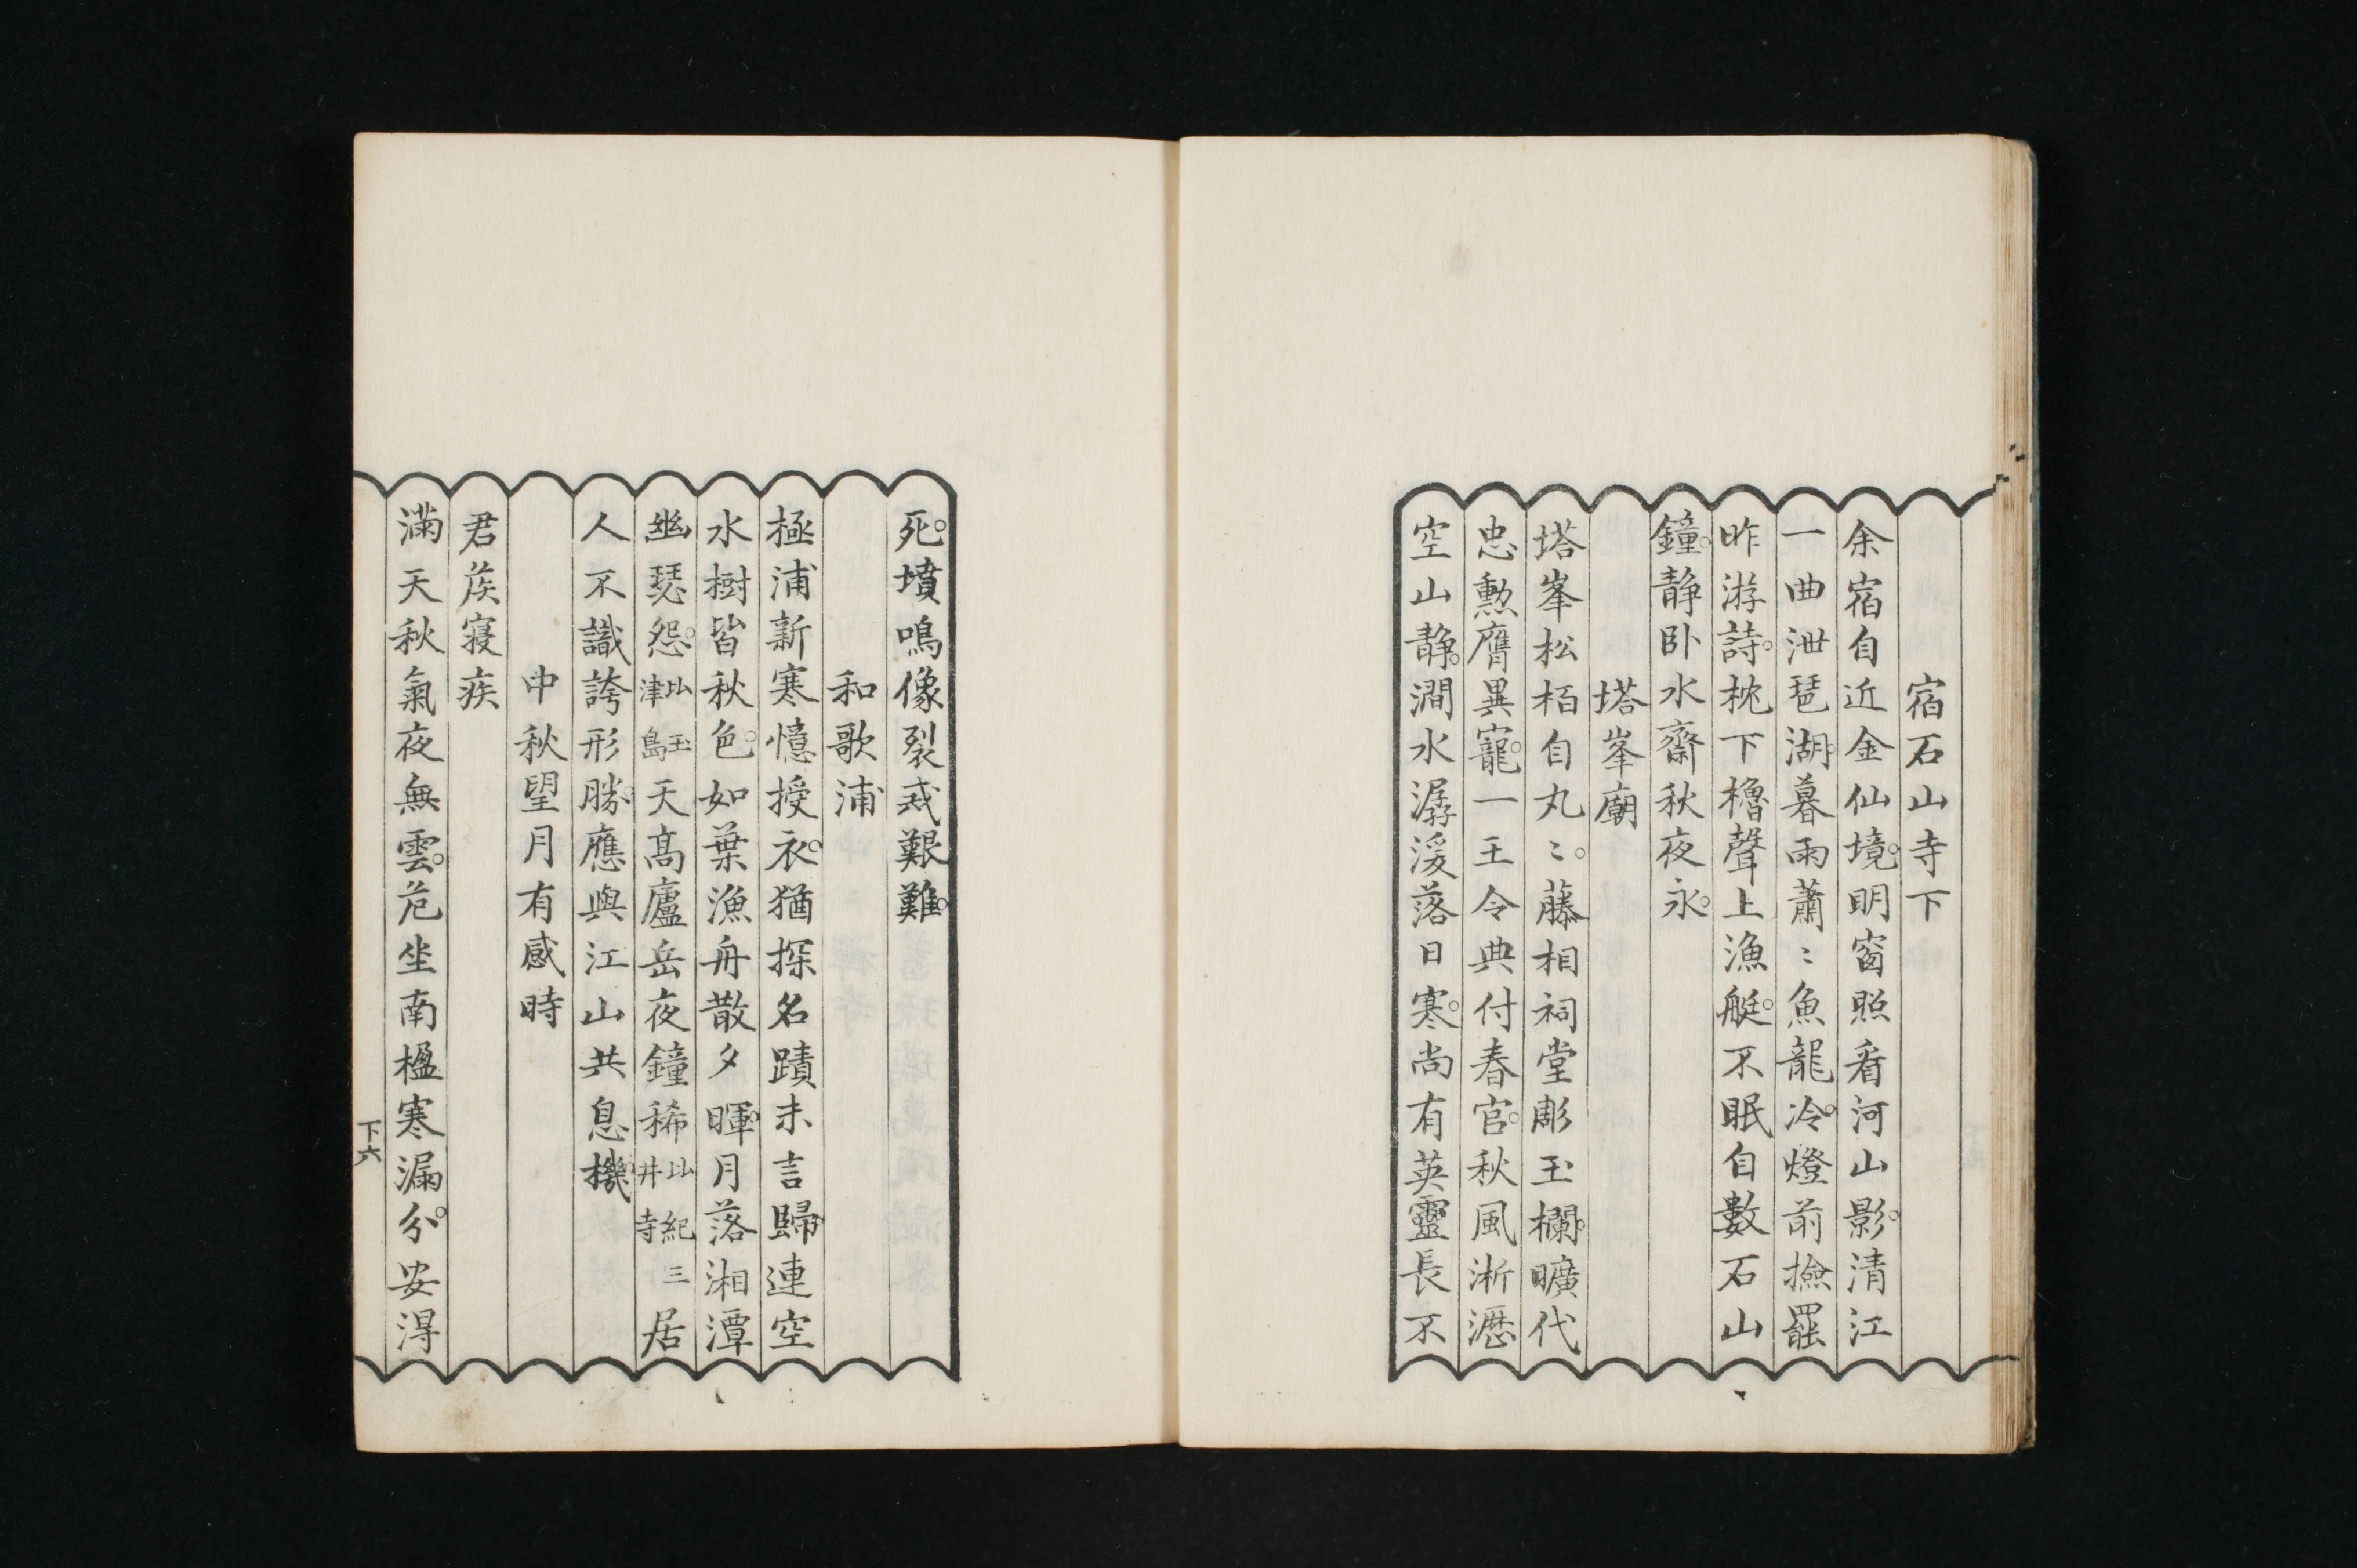 宿石山寺下
余宿自近金仙境。明窗照看河山影。清江
一曲泄琶湖。暮雨蕭〻魚龍冷。燈前撿罷
昨游詩。枕下櫓聲上漁艇。不眠自數石山
鐘。靜卧水齋秋夜永。
塔峯廟
塔峯松栢自丸〻。藤相祠堂彫玉欄。曠代
忠勲膺異寵。一王令典付春官。秋風淅瀝
空山静。澗水潺湲落日寒。尚有英靈長不
死。墳鳴像裂戒艱難。
和歌浦
極浦新寒憶授衣。猶探名蹟未言歸。連空
水樹皆秋色。如葉漁舟散夕暉。月落湘潭
幽瑟怨。比玉津島天高廬岳夜鐘稀。比紀三井寺居
人不識誇形勝。應與江山共息機。
中秋望月有感時
君矦寢疾
滿天秋氣夜無雲。危坐南楹寒漏分。安得
下六